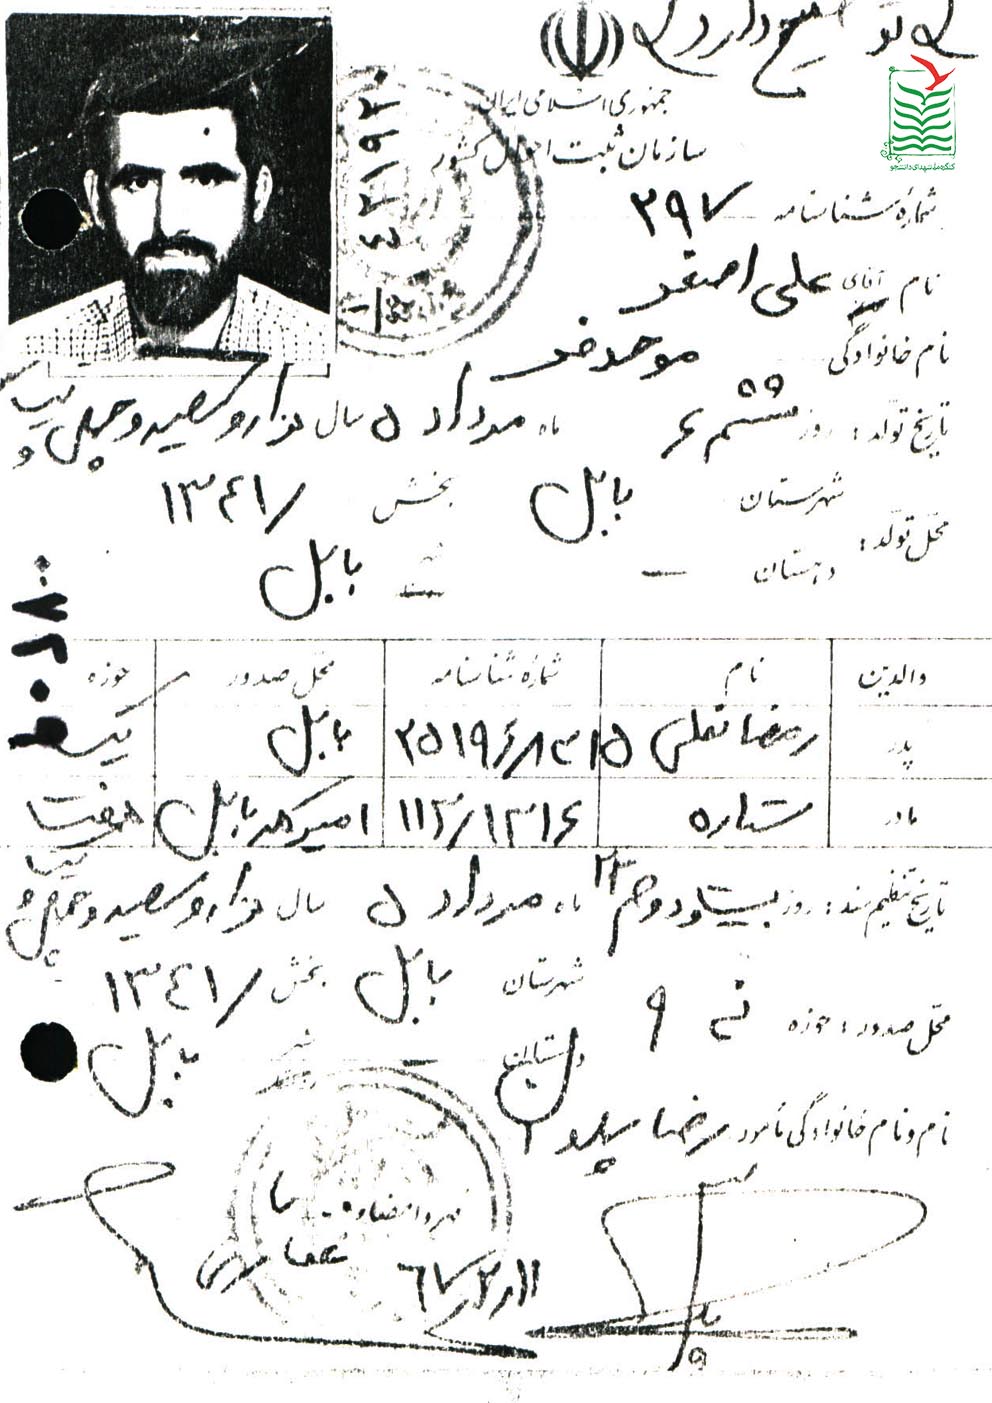 جمهوری اسلامی ایران
سازمان ثبت احوال کشور
کنگره ملی شهدای دانشجو
شمارهٔ شناسنامه ۲۹۷
نام آقای علی اصغر
نام خانوادگی موحدفر
تاریخ تولد: روز ششم ۶ ماه مرداد ۵ سال هزار و سیصد و چهل و یک
محل تولد: شهرستان بابل بخش ۱۳۴۱/
دهستان – شهر بابل
والدین نام شمارهٔ شناسنامه محل صدور حوزه
پدر رمضانعلی بابل یک
مادر ستاره ۱۱۲/۱۳۱۶ امیرکلا بابل هفت
تاریخ تنظیم سند: روز بیست و دوم ۲۲ ماه مرداد ۵ سال هزار و سیصد و چهل و یک
محل صدور: حوزه نه ۹ شهرستان بابل بخش ۱۳۴۱/
دهستان شهر بابل
نام و نام خانوادگی مأمور رضا
مهر و امضاء
۶۷/۲/۱۱